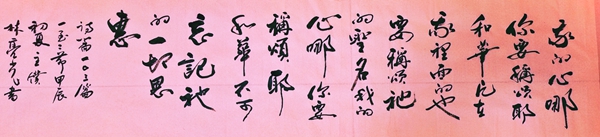 我的心哪
你要稱頌耶
和華凡在
我裡面的也
要稱頌祂
的聖名我的
心哪你要
稱頌耶
和華不可
忘記祂
的一切恩
惠
詩篇一〇三篇
一至二節甲辰
初夏主僕
林 書